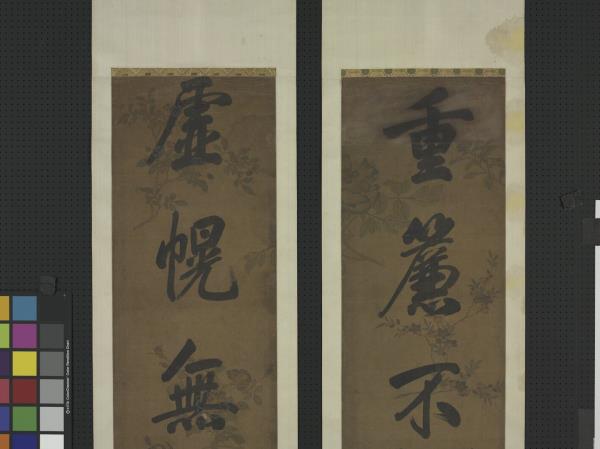 重簾不
虛幌無